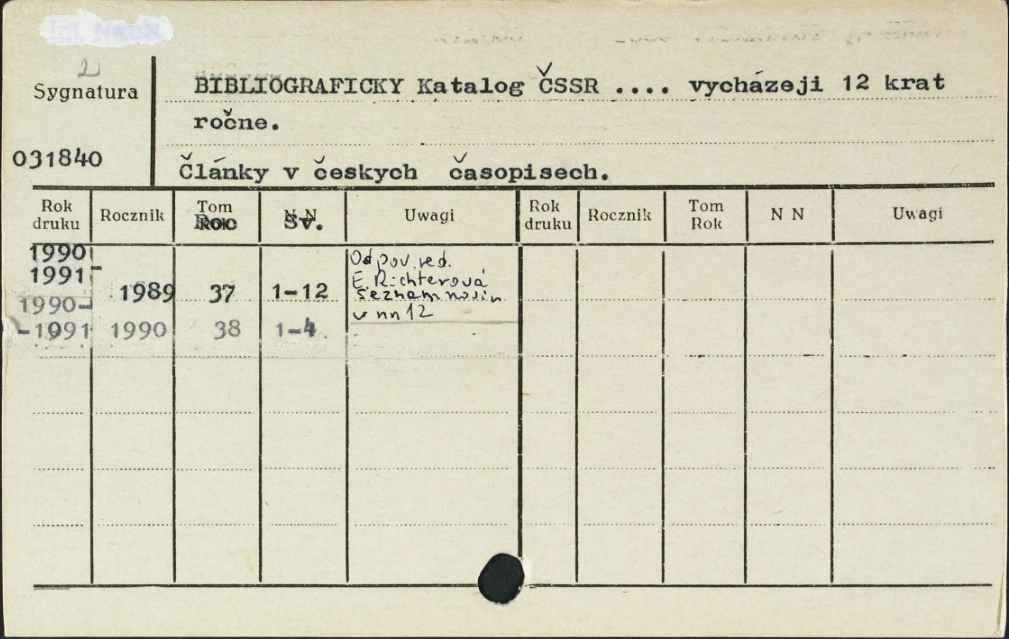 Sygnatura
BIBLIOGRAFICKY Katalog ČSSR .... vycházeji 12 krat
ročne.
031840
Články v českych časopisech.
Rok druku Rocznik Tom Rok N N Sv. Uwagi Rok druku Rocznik Tom Rok N N Uwagi
1990
1991- 1989 37 1-12 Odpov. red.
E. Richterová
seznam novin
v nn 12
1990-
-1991 1990 38 1-4